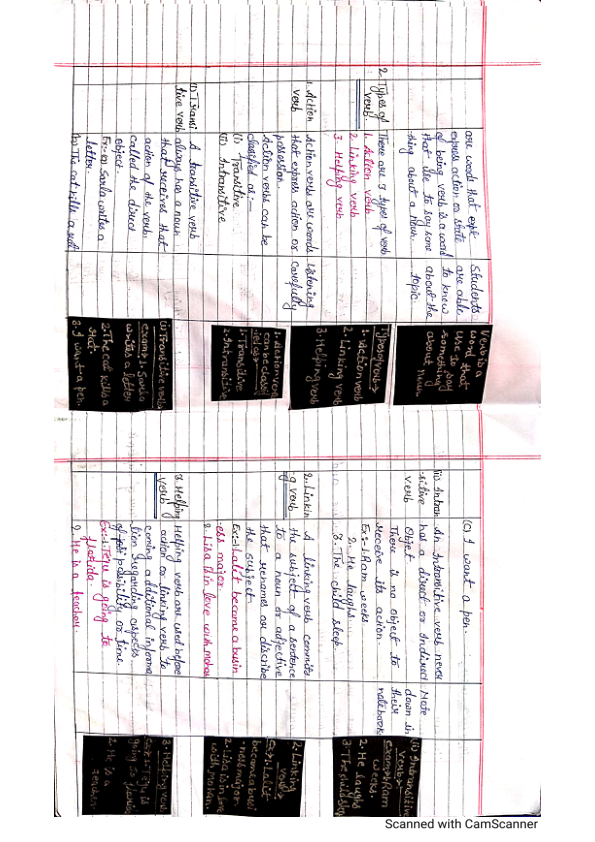 are words that
express action or state
of being verb is a word
that use to say some
thing about a noun.
Students
are able
to know
about the
topic.
Verb is a
word that
use to say
something
about noun
2. Types of
verb
There are 3 types of verb
1. Action verb
2. Linking verb
3. Helping verb
Types of verb
1. Action verb
2. Linking verb
3. Helping verb
1. Action
verb
Action verb are words
that express action or
possession
Action verbs can be
classified as:-
(i) Transitive
(ii) Intransitive
Listening
carefully
1. Action verb
can be classi
1. Transitive
2. Intransitive
(i) Transi
tive verb
A transitive verb
always has a noun
that receives that
action of the verb.
called the direct
object.
Ex:- (a) Sarla writes a
letter.
(b) The cat kills a
(i) Transitive verb
example Sarla
writes a letter
2. The cat kills a
3. I want a pen.
(c) I want a pen.
(ii) Intran
sitive
verb
An Intransitive verb never
has a direct or Indirect
Objet
There is no object to
receive its action
Ex:- 1. Ram weeks
2. He laughs
3. The child sleep.
Note
down in
their
notebooks
(ii) Intransitive
verb
example Ram
weeks.
2. He laughs
3. The child
2. Linkin
g verb
A linking verb connects
the subject of a sentence
to a noun or adjective
that renames or discribe
the subject.
Ex:- 1. Lalit become a busin
ess major
2. Lisa is in love with mohan
2. Linking
verb
Ex:- 1. Lalit
become a busi
ness major
2. Lisa is in love
with mohan
3. Helping
verb
Helping verb are used before
action or linking verb to
coming a additional informa
tion regarding aspects
of possibility or time.
Ex:- 1. Teju is going to
florida.
2. He is a teacher.
3. Helping verb
Ex:- 1. Teju is
going to florida
2. He is a
teacher
Scanned with CamScanner